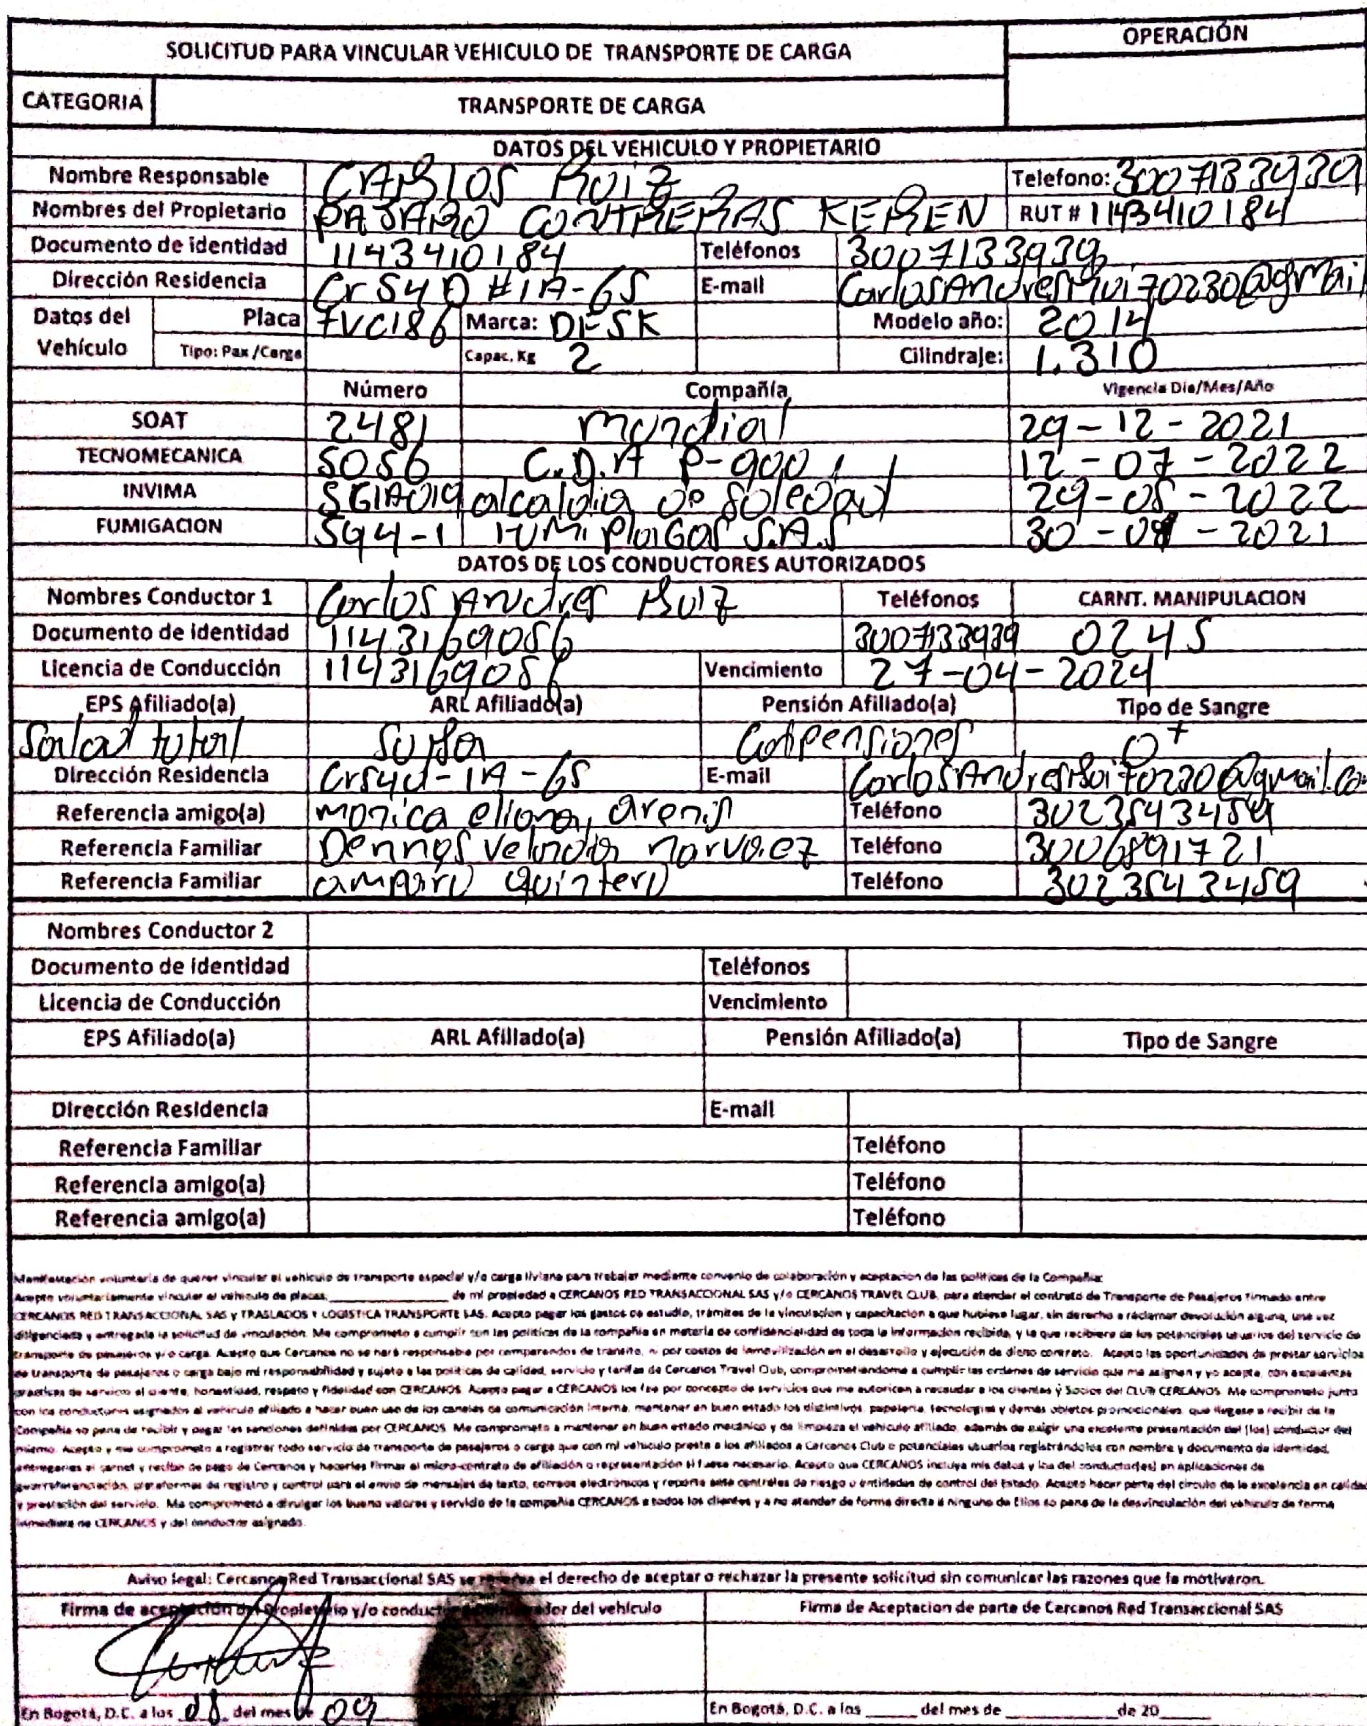 SOLICITUD PARA VINCULAR VEHICULO DE TRANSPORTE DE CARGA
OPERACIÓN
CATEGORIA
TRANSPORTE DE CARGA
DATOS DEL VEHICULO Y PROPIETARIO
Nombre Responsable CARLOS RUIZ Telefono: 3007133939
Nombres del Propietario PAJARO CONTRERAS KEREN RUT # 1143410184
Documento de identidad 1143410184 Teléfonos 3007133939
Dirección Residencia Cr 54D #1A-65 E-mail CarlosAndresRuiz0230@gmail
Datos del Vehículo Placa FVC186 Marca: DFSK Modelo año: 2014
Tipo: Pax/Carga Capac. Kg 2 Cilindraje: 1.310
Número Compañía Vigencia Dia/Mes/Año
SOAT 2481 mundial 29-12-2021
TECNOMECANICA 5056 C.D.A P-900 12-07-2022
INVIMA alcaldia de Soledad 29-05-2022
FUMIGACION 594-1 S.A.S 30-08-2021
DATOS DE LOS CONDUCTORES AUTORIZADOS
Nombres Conductor 1 Carlos Andres Ruiz Teléfonos CARNT. MANIPULACION
Documento de identidad 1143169056 3007133939 0245
Licencia de Conducción 1143169056 Vencimiento 27-04-2024
EPS Afiliado(a) ARL Afiliado(a) Pensión Afiliado(a) Tipo de Sangre
Salud total Sura Colpensiones O+
Dirección Residencia Cr54d-1A-65 E-mail CarlosAndresRuiz0230@gmail.co
Referencia amigo(a) monica eliana Teléfono 3023543459
Referencia Familiar Teléfono 3006891721
Referencia Familiar amparo quintero Teléfono 3023543459
Nombres Conductor 2
Documento de identidad Teléfonos
Licencia de Conducción Vencimiento
EPS Afiliado(a) ARL Afiliado(a) Pensión Afiliado(a) Tipo de Sangre
Dirección Residencia E-mail
Referencia Familiar Teléfono
Referencia amigo(a) Teléfono
Referencia amigo(a) Teléfono
Manifestación voluntaria de querer vincular el vehículo de transporte especial y/o carga liviana para trabajar mediante convenio de colaboración y aceptación de las políticas de la Compañía:
Acepto voluntariamente vincular el vehículo de placas, ____________ de mi propiedad a CERCANOS RED TRANSACCIONAL SAS y/o CERCANOS TRAVEL CLUB, para atender el contrato de Transporte de Pasajeros firmado entre
CERCANOS RED TRANSACCIONAL SAS y TRASLADOS Y LOGISTICA TRANSPORTE SAS. Acepto pagar los gastos de estudio, trámites de la vinculación y capacitación a que hubiese lugar, sin derecho a reclamar devolución alguna, una vez
diligenciada y entregada la solicitud de vinculación. Me comprometo a cumplir con las políticas de la compañía en materia de confidencialidad de toda la información recibida, y la que recibiere de los potenciales usuarios del servicio de
transporte de pasajeros y/o carga. Acepto que Cercanos no se hará responsable por comparendos de transito, ni por costos de inmovilización en el desarrollo y ejecución de dicho contrato. Acepto las oportunidades de prestar servicios
de transporte de pasajeros o carga bajo mi responsabilidad y sujeto a las políticas de calidad, servicio y tarifas de Cercanos Travel Club, comprometiendome a cumplir las ordenes de servicio que me asignen y yo acepte, con excelentes
practicas de servicio al cliente, honestidad, respeto y fidelidad con CERCANOS. Acepto pagar a CERCANOS los fee por concepto de servicios que me autoricen a recaudar a los clientes y Socios del CLUB CERCANOS. Me comprometo junto
con los conductores asignados al vehiculo afiliado a hacer buen uso de los canales de comunicación interna, mantener en buen estado los distintivos, papeleria, tecnologias y demás objetos promocionales, que llegase a recibir de la
Compañía so pena de recibir y pagar las sanciones definidas por CERCANOS. Me comprometo a mantener en buen estado mecánico y de limpieza el vehículo afiliado, además de exigir una excelente presentación del (los) conductor del
mismo. Acepto y me comprometo a registrar todo servicio de transporte de pasajeros o carga que con mi vehiculo preste a los afiliados a Cercanos Club o potenciales usuarios registrándolos con nombre y documento de identidad,
entregarles el carnet y recibo de pago de Cercanos y hacerles firmar el micro-contrato de afiliación o representación si fuese necesario. Acepto que CERCANOS incluya mis datos y los del conductor(es) en Aplicaciones de
georreferenciación, plataformas de registro y control para el envio de mensajes de texto, correos electrónicos y reporte ante centrales de riesgo o entidades de control del Estado. Acepto hacer parte del circulo de la excelencia en calidad
y prestación del servicio. Me comprometo a divulgar los buena valores y servicio de la compañía CERCANOS a todos los clientes y a no atender de forma directa a ninguno de Ellos so pena de la desvinculación del vehiculo de forma
inmediata de CERCANOS y del conductor asignado.
Aviso legal: Cercanos Red Transaccional SAS se reserva el derecho de aceptar o rechazar la presente solicitud sin comunicar las razones que la motivaron.
Firma de aceptación del Propietario y/o conductor del vehículo Firma de Aceptacion de parte de Cercanos Red Transaccional SAS
En Bogotá, D.C. a los 08 del mes de 09 En Bogotá, D.C. a los ______ del mes de ____________ de 20______